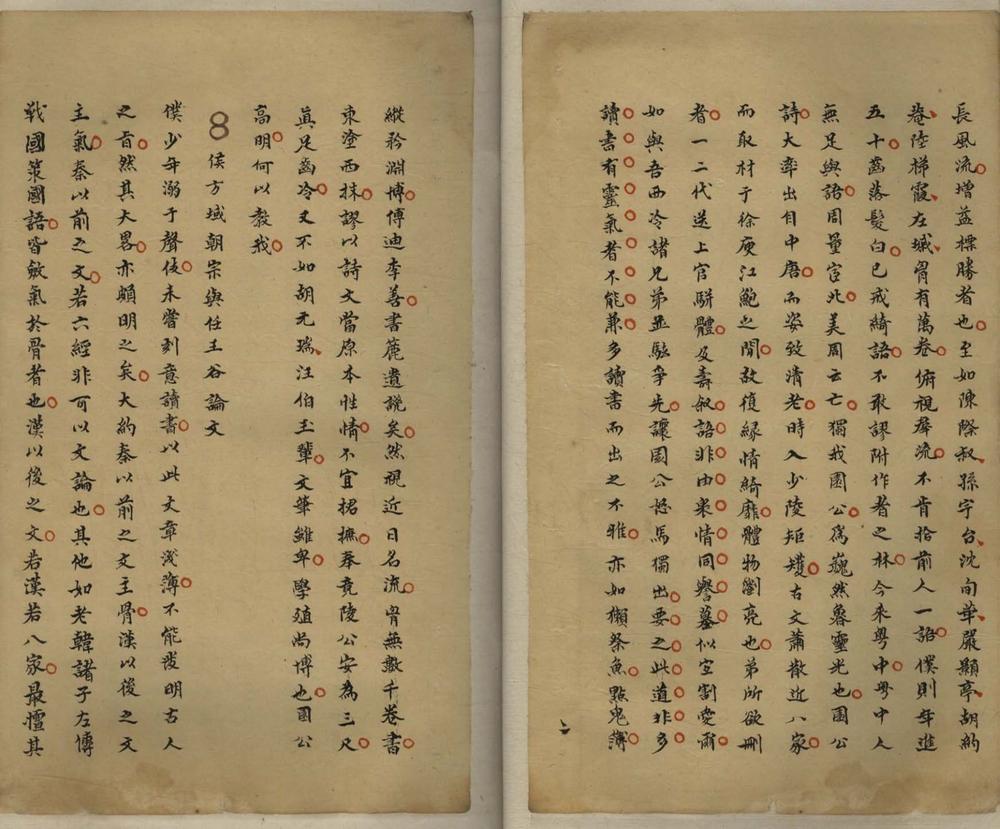 長風流增益標勝者也至如陳際叔孫宇台沈甸華嚴顥亭胡約
菴陸梯霞左城胷有萬卷俯視群流不肯拾前人一語僕則年進
五十齒落髮白已戒綺語不敢謬附作者之林今来粤中粤中人
無足與語周量宦北美周云亡獨我園公爲巍然魯靈光也園公
詩大率出自中唐而姿致清老時入少陵矩矱古文蕭散近八家
而取材于徐庾江鮑之間故復緣情綺靡體物瀏亮也第所欲刪
者一二代送上官駢體及壽叙語非由衷情同譽墓似宜割愛爾
如與吾西冷諸兄弟並駈爭先讓園公怒馬獨出要之此道非多
讀書有靈氣者不能兼多讀書而出之不雅亦如獺祭魚點鬼簿
縱矜淵博傅迪李善書簏遺誚矣然視近日名流胷無數千卷書
東塗西抹謬以詩文當原本性情不宜捃摭奉竟陵公安為三尺
眞足齒冷又不如胡元瑞汪伯玉輩文筆雖卑學殖尚博也園公
高明何以教我
8 侯方域朝宗與任王谷論文
僕少年溺于聲伎未嘗刻意讀書以此文章淺薄不能發明古人
之旨然其大畧亦頗明之矣大約秦以前之文主骨漢以後之文
主氣秦以前之文若六經非可以文論也其他如老韓諸子左傳
戰國策國語皆斂氣於骨者也漢以後之文若漢若八家最擅其